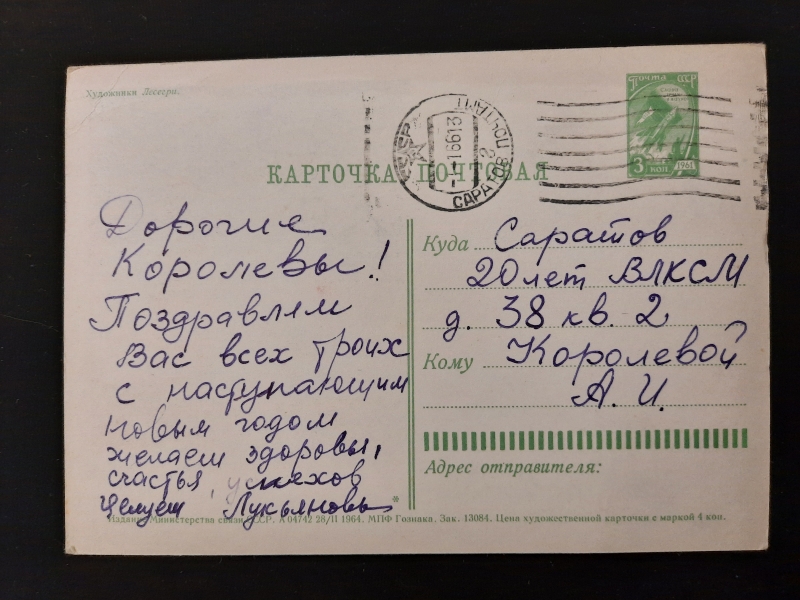 Художники Лесегри.
Почта СССР
3 коп.
1961
СССР
САРАТОВ
ПОЧТАМТ
КАРТОЧКА ПОЧТОВАЯ
Дорогие
Королевы!
Поздравляем
Вас всех троих
с наступающим
новым годом
желаем здоровья,
счастья, успехов
Целуем Лукьяновы
Куда Саратов
20 лет ВЛКСМ
д. 38 кв. 2
Кому Королевой
А. И.
Адрес отправителя:
Издание Министерства связи СССР. А 04742 28/II 1964. МПФ Гознака. Зак. 13084. Цена художественной карточки с маркой 4 коп.